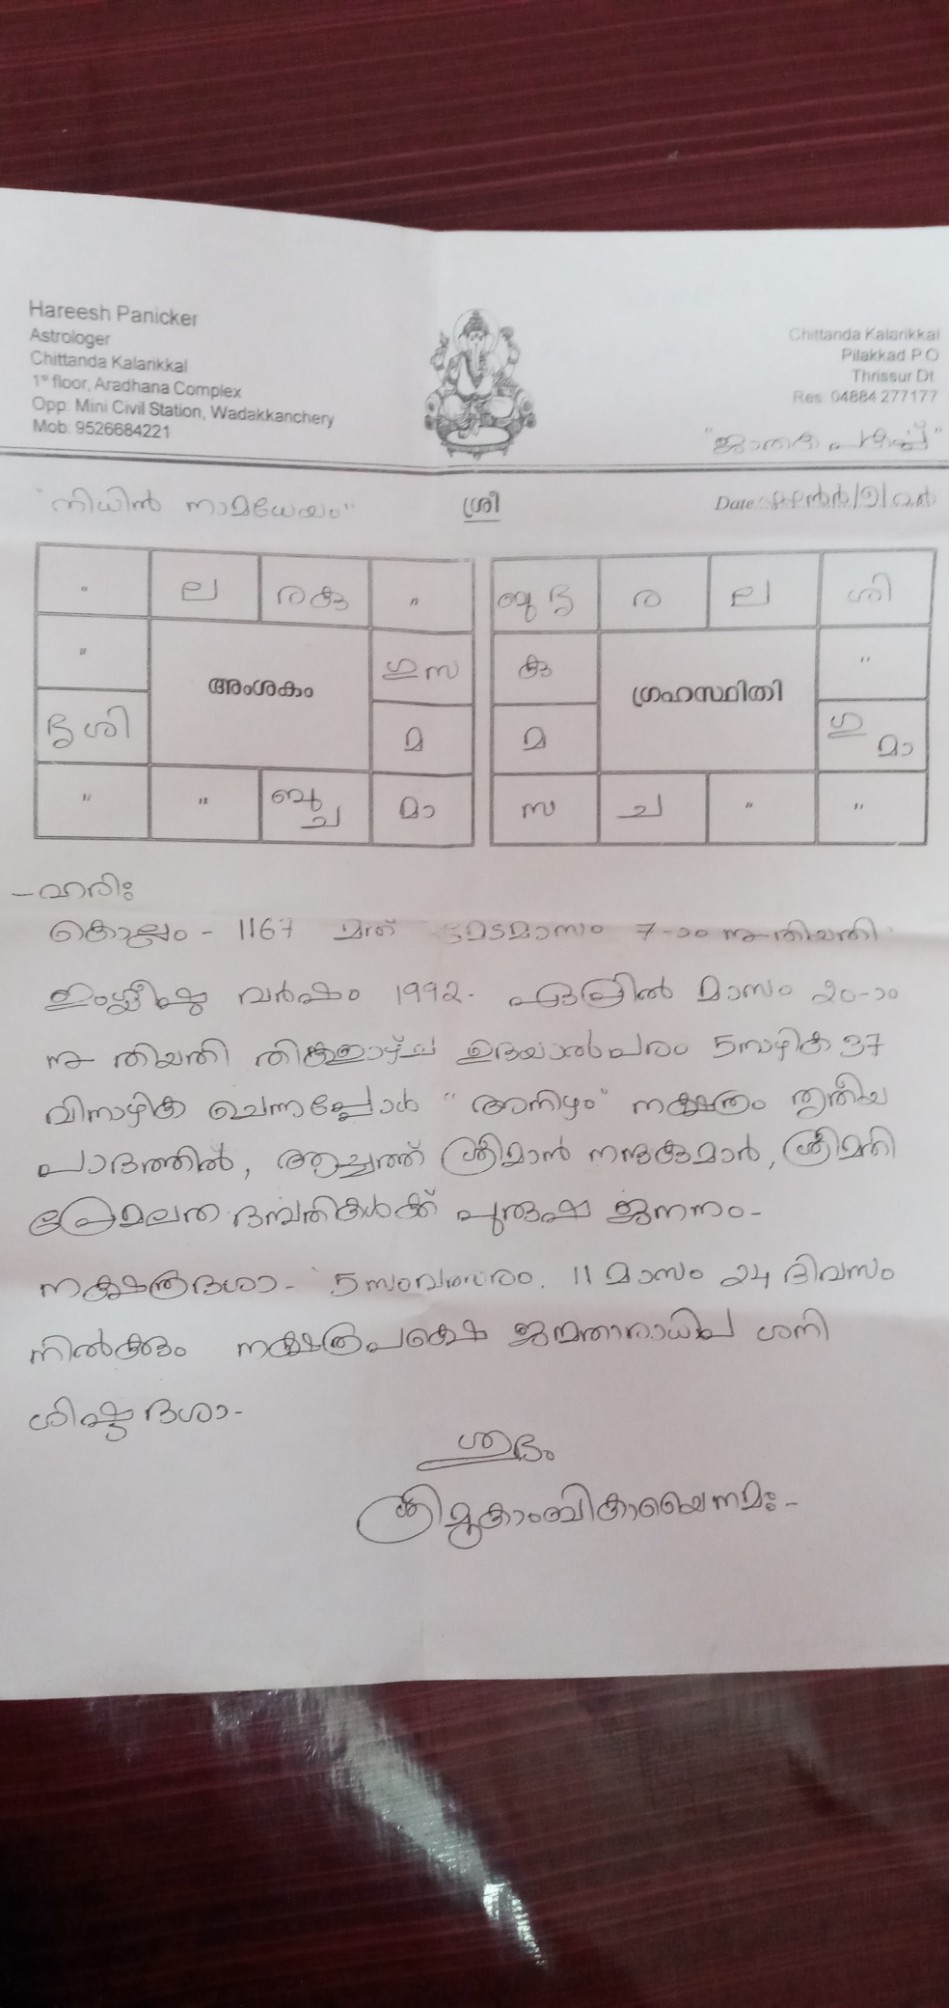 Hareesh Panicker
Astrologer
Chittanda Kalarikkal
1st floor, Aradhana Complex
Opp: Mini Civil Station, Wadakkanchery
Mob: 9526684221
Chittanda Kalarikkal
Pilakkad P.O
Thrissur Dt
Res: 04884 277177
"ജാതക
"നിധിൻ നാമധേയം"
ശ്രീ
Date
" ല രകു "
" ഗുസ
അംശകം
ഭൃശി മ
" " ബുച മാ
ബുഭൃ ര ല ശി
കു "
ഗ്രഹസ്ഥിതി
മ ഗു മാ
സ ച " "
–ഹരിഃ
കൊല്ലം - 1167 മത് മേടമാസം 7-ാം നു തിയതി
ഇംഗ്ലീഷു വർഷം 1992. ഏപ്രിൽ മാസം 20-ാം
നു തിയതി തിങ്കളാഴ്ച ഉദയാൽപരം 5 നാഴിക 37
വിനാഴിക ചെന്നപ്പോൾ "അനിഴം" നക്ഷത്രം തൃതീയ
പാദത്തിൽ, ശ്രീമാൻ നന്ദകുമാർ, ശ്രീമതി
പ്രേമലത ദമ്പതികൾക്ക് പുരുഷ ജനനം-
നക്ഷത്രദശാ- 5 സംവത്സരം. 11 മാസം 24 ദിവസം
നിൽക്കും നക്ഷത്രപക്ഷെ ജന്മതാരാധിപ ശനി
ശിഷ്ട ദശാ-
ശുഭം
ശ്രീമൂകാംബികായൈനമഃ-